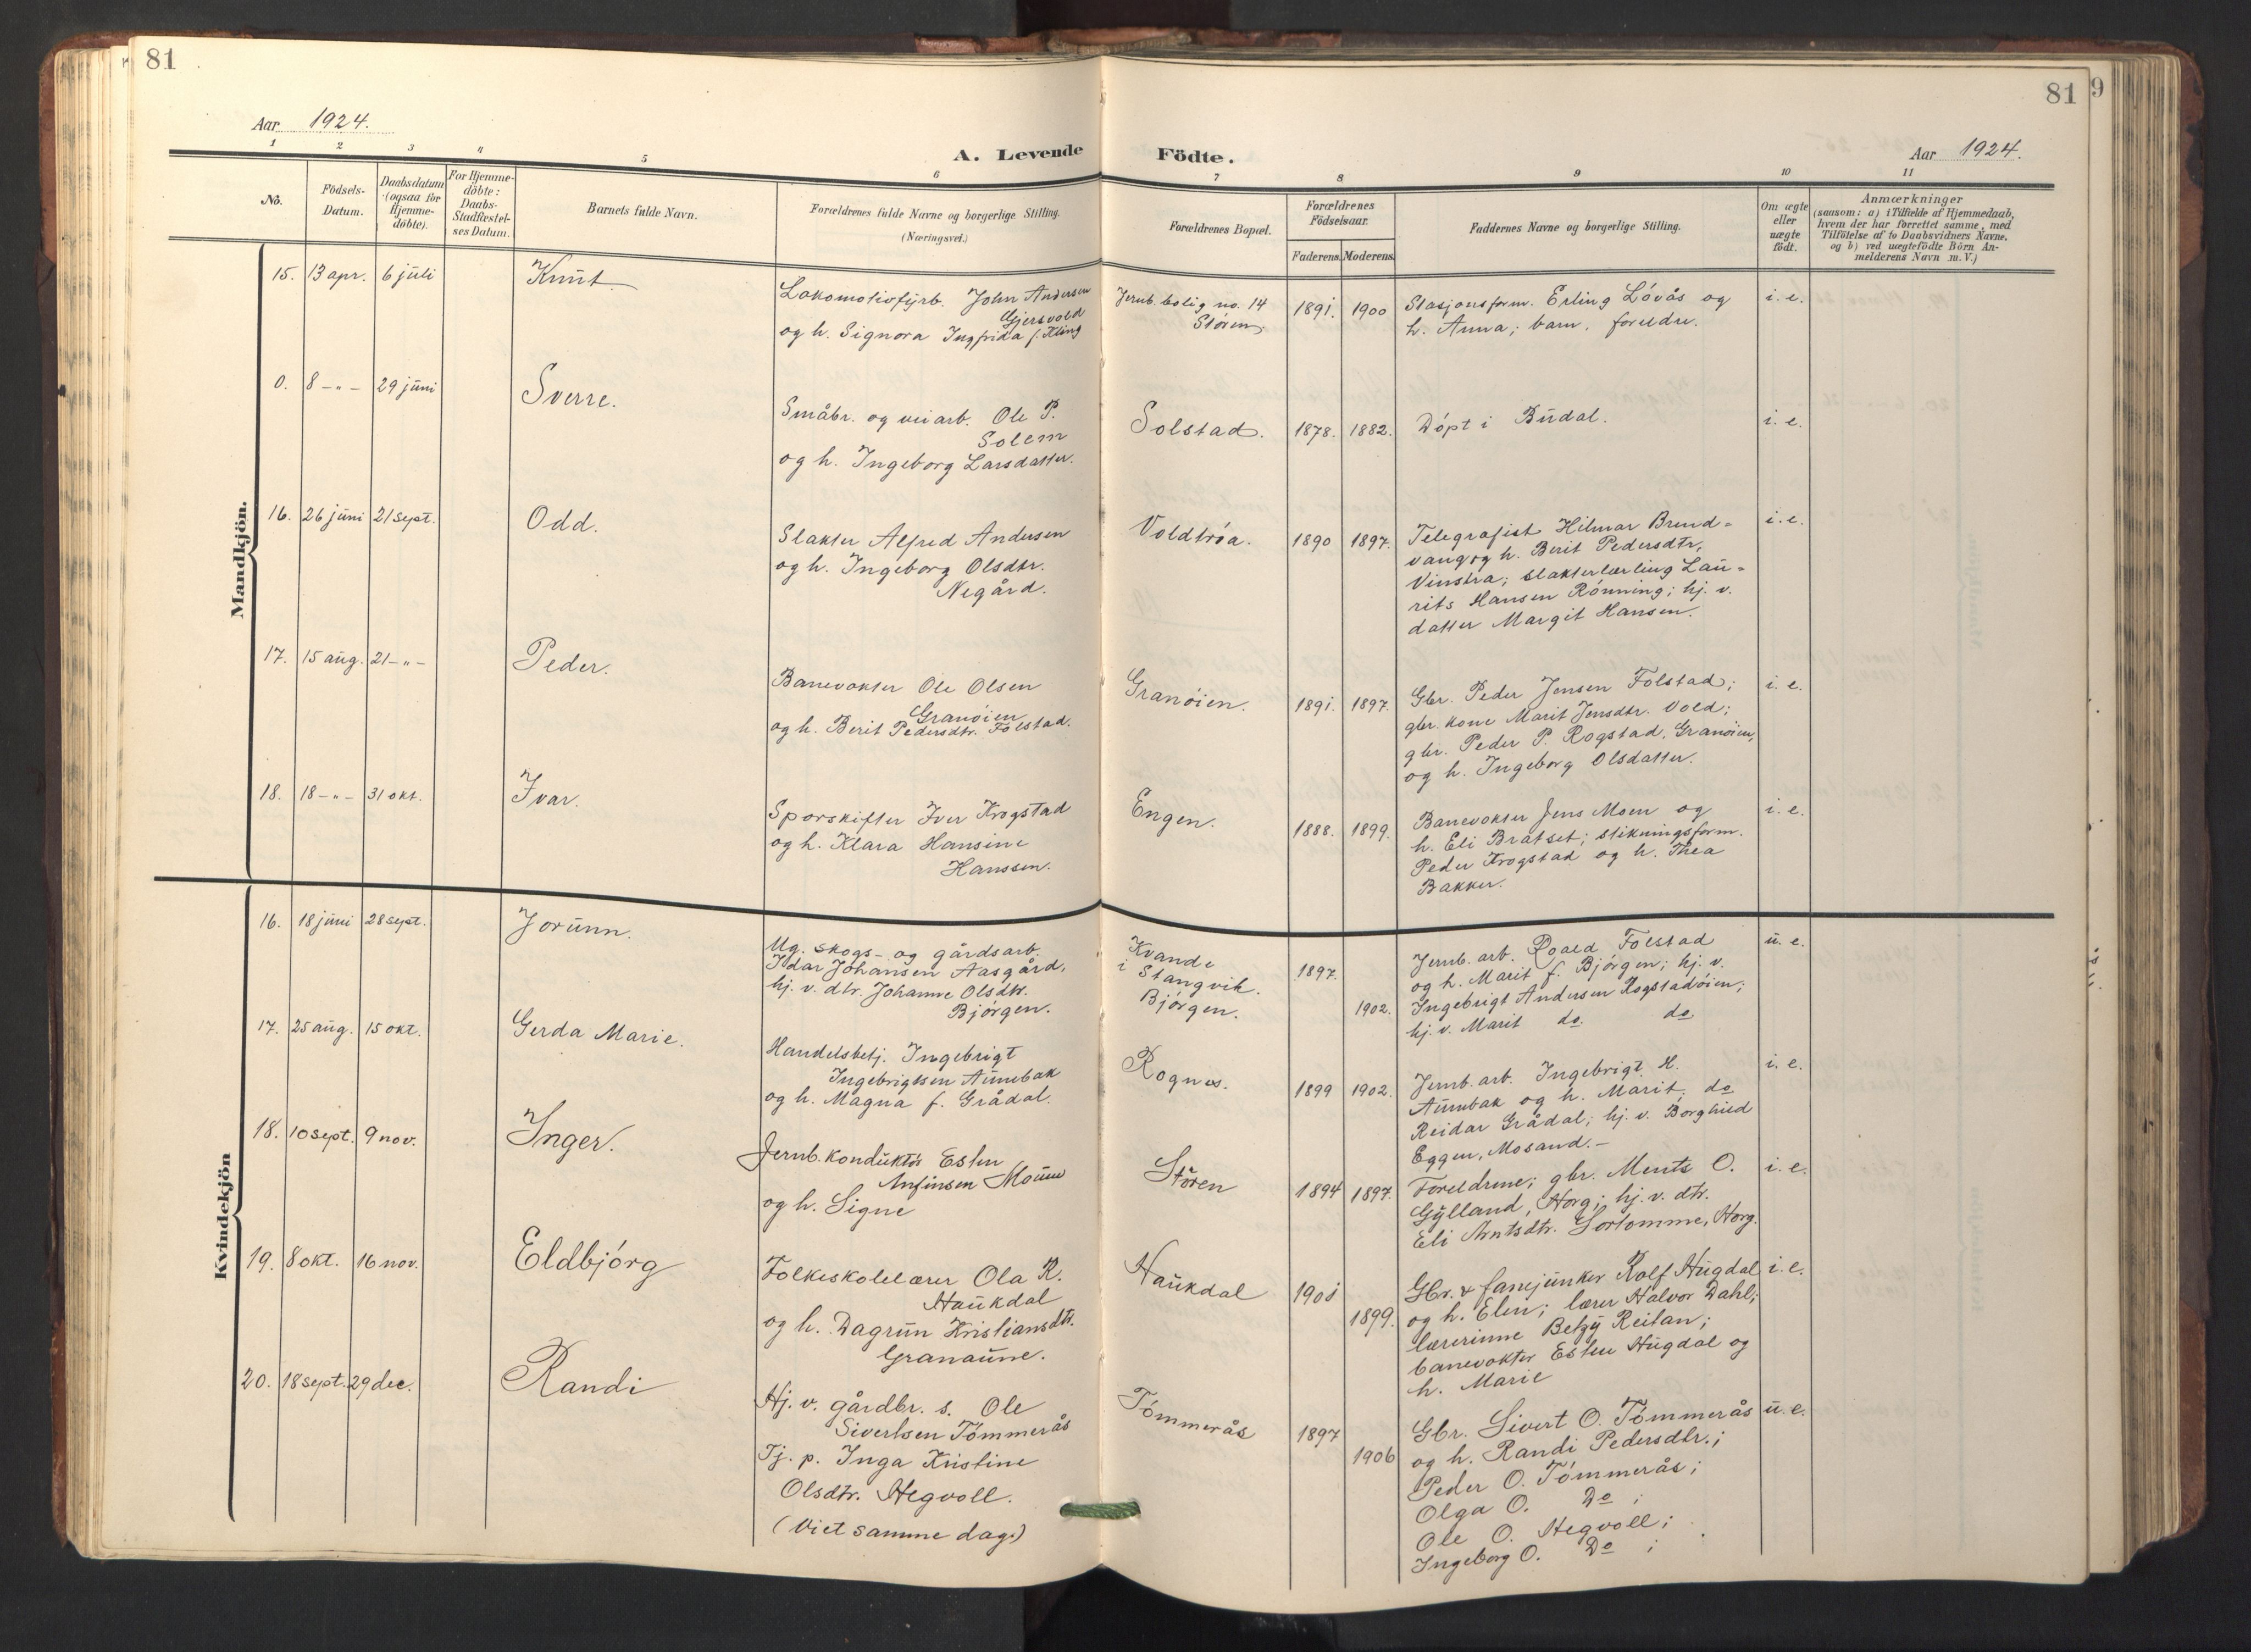 81
Aar 1924.
A. Levende
1 2 3 4 5 6
No.
Födsels-
Datum.
Daabsdatum
(ogsaa for
Hjemme-
döbte).
For Hjemme-
döbte:
Daabs-
Stadfæstel-
ses Datum.
Barnets fulde Navn.
Forældrenes fulde Navne og borgerlige Stilling.
(Næringsvei.)
Mandkjön.
15. 13 apr. 6 juli Knut
Lokomotivfyrb. John Andersen
Gjersvold
og h. Signora Ingfrida f. Kling
0. 8 -"- 29 juni Sverre.
Småbr. og veiarb. Ole P.
Solem
og h. Ingeborg Larsdatter.
16. 26 juni 21 sept. Odd.
Slakter Alfred Andersen
og h. Ingeborg Olsdtr.
Negård.
17. 15 aug. 21 -"- Peder.
Banevokter Ole Olsen
Granöien
og h. Berit Pedersdtr. Folstad.
18. 18 -"- 31 okt. Ivar.
Sporskifter Iver Krogstad
og h. Klara Hansine
Hanssen.
Kvindekjön
16. 18 juni 28 sept. Jorunn.
Ug. skogs- og gårdsarb.
Idar Johansen Aasgård,
hj. v. dtr. Johanne Olsdtr.
Bjørgen.
17. 25 aug. 15 okt. Gerda Marie.
Handelsbetj. Ingebrigt
Ingebrigtsen Aunebak
og h. Magna f. Grådal.
18. 10 sept. 9 nov. Inger.
Jernb. konduktör Esten
Anfinsen Moum
og h. Signe
19. 8 okt. 16 nov. Eldbjórg
Folkeskolelærer Ola R.
Haukdal
og h. Dagrun Kristiansdtr.
Granaune.
20. 18 sept. 29 dec. Randi
Hj. v. gårdbr. s. Ole
Sivertsen Tömmerås
Tj. p. Inga Kristine
Olsdtr. Hegvoll.
(Viet samme dag.)
81
9
Födte.
Aar 1924.
7 8 9 10 11
Forældrenes Bopæl.
Forældrenes
Födselsaar.
Faderens. Moderens.
Faddernes Navne og borgerlige Stilling.
Om ægte
eller
uægte
födt.
Anmærkninger
(saasom: a) i Tilfælde af Hjemmedaab,
hvem der har forrettet samme, med
Tilföielse af to Daabsvidners Navne,
og b) ved uægtefödte Börn An-
melderens Navn m. V.)
Jernb. bolig no. 14
Støren
1891. 1900
Stasjonsform. Erling Lövås og
h. Anna; barn. foreldre.
i. e.
Solstad. 1878. 1882. Döpt i Budal. i. e.
Voldtróa. 1890 1897.
Telegrafist Hilmar Brend=
vang og h. Berit Pedersdtr,
Vinstra; slakterlærling Lau=
rits Hansen Rönning; hj. v.
datter Margit Hansen.
i. e.
Granöien. 1891. 1897.
Gbr. Peder Jensen Folstad;
gbr. kone Marit Jensdtr. Vold;
gbr. Peder P. Rogstad, Granöien,
og h. Ingeborg Olsdatter.
i. e.
Engen. 1888. 1899.
Banevokter Jens Moen og
h. Eli Bratset; stikningsform.
Peder Krogstad og h. Thea
Bakken.
i. e.
Kvande
i Stangvik.
Bjørgen.
1897.
1902.
Jernb. arb. Roald Folstad
og h. Marit f. Bjørgen; hj. v.
Ingebrigt Andersen Rogstadöien;
hj. v. Marit do. do.
u. e.
Rognes. 1899 1902.
Jernb. arb. Ingebrigt H.
Aunebak og h. Marit; do
Reidar Grådal; hj. v. Borghild
Eggen, Mosand.-
i. e.
Stören 1894 1897.
Foreldrene; gbr. Ments O.
Gylland, Horg; hj. v. dtr.
Eli Arntsdtr. Sortomme, Horg.
i. e.
Haukdal 1901 1899.
Gbr. & fanejunker Rolf Hugdal
og h. Elen; lærer Halvor Dahl;
lærerinne Betzy Reitan;
banevokter Esten Hugdal og
h. Marie
i. e.
Tömmerås 1897 1906
Gbr. Sivert O. Tömmerås
og h. Randi Pedersdtr.;
Peder O. Tömmerås;
Olga O. Do ;
Ole O. Hegvoll;
Ingeborg O. Do ;
u. e.